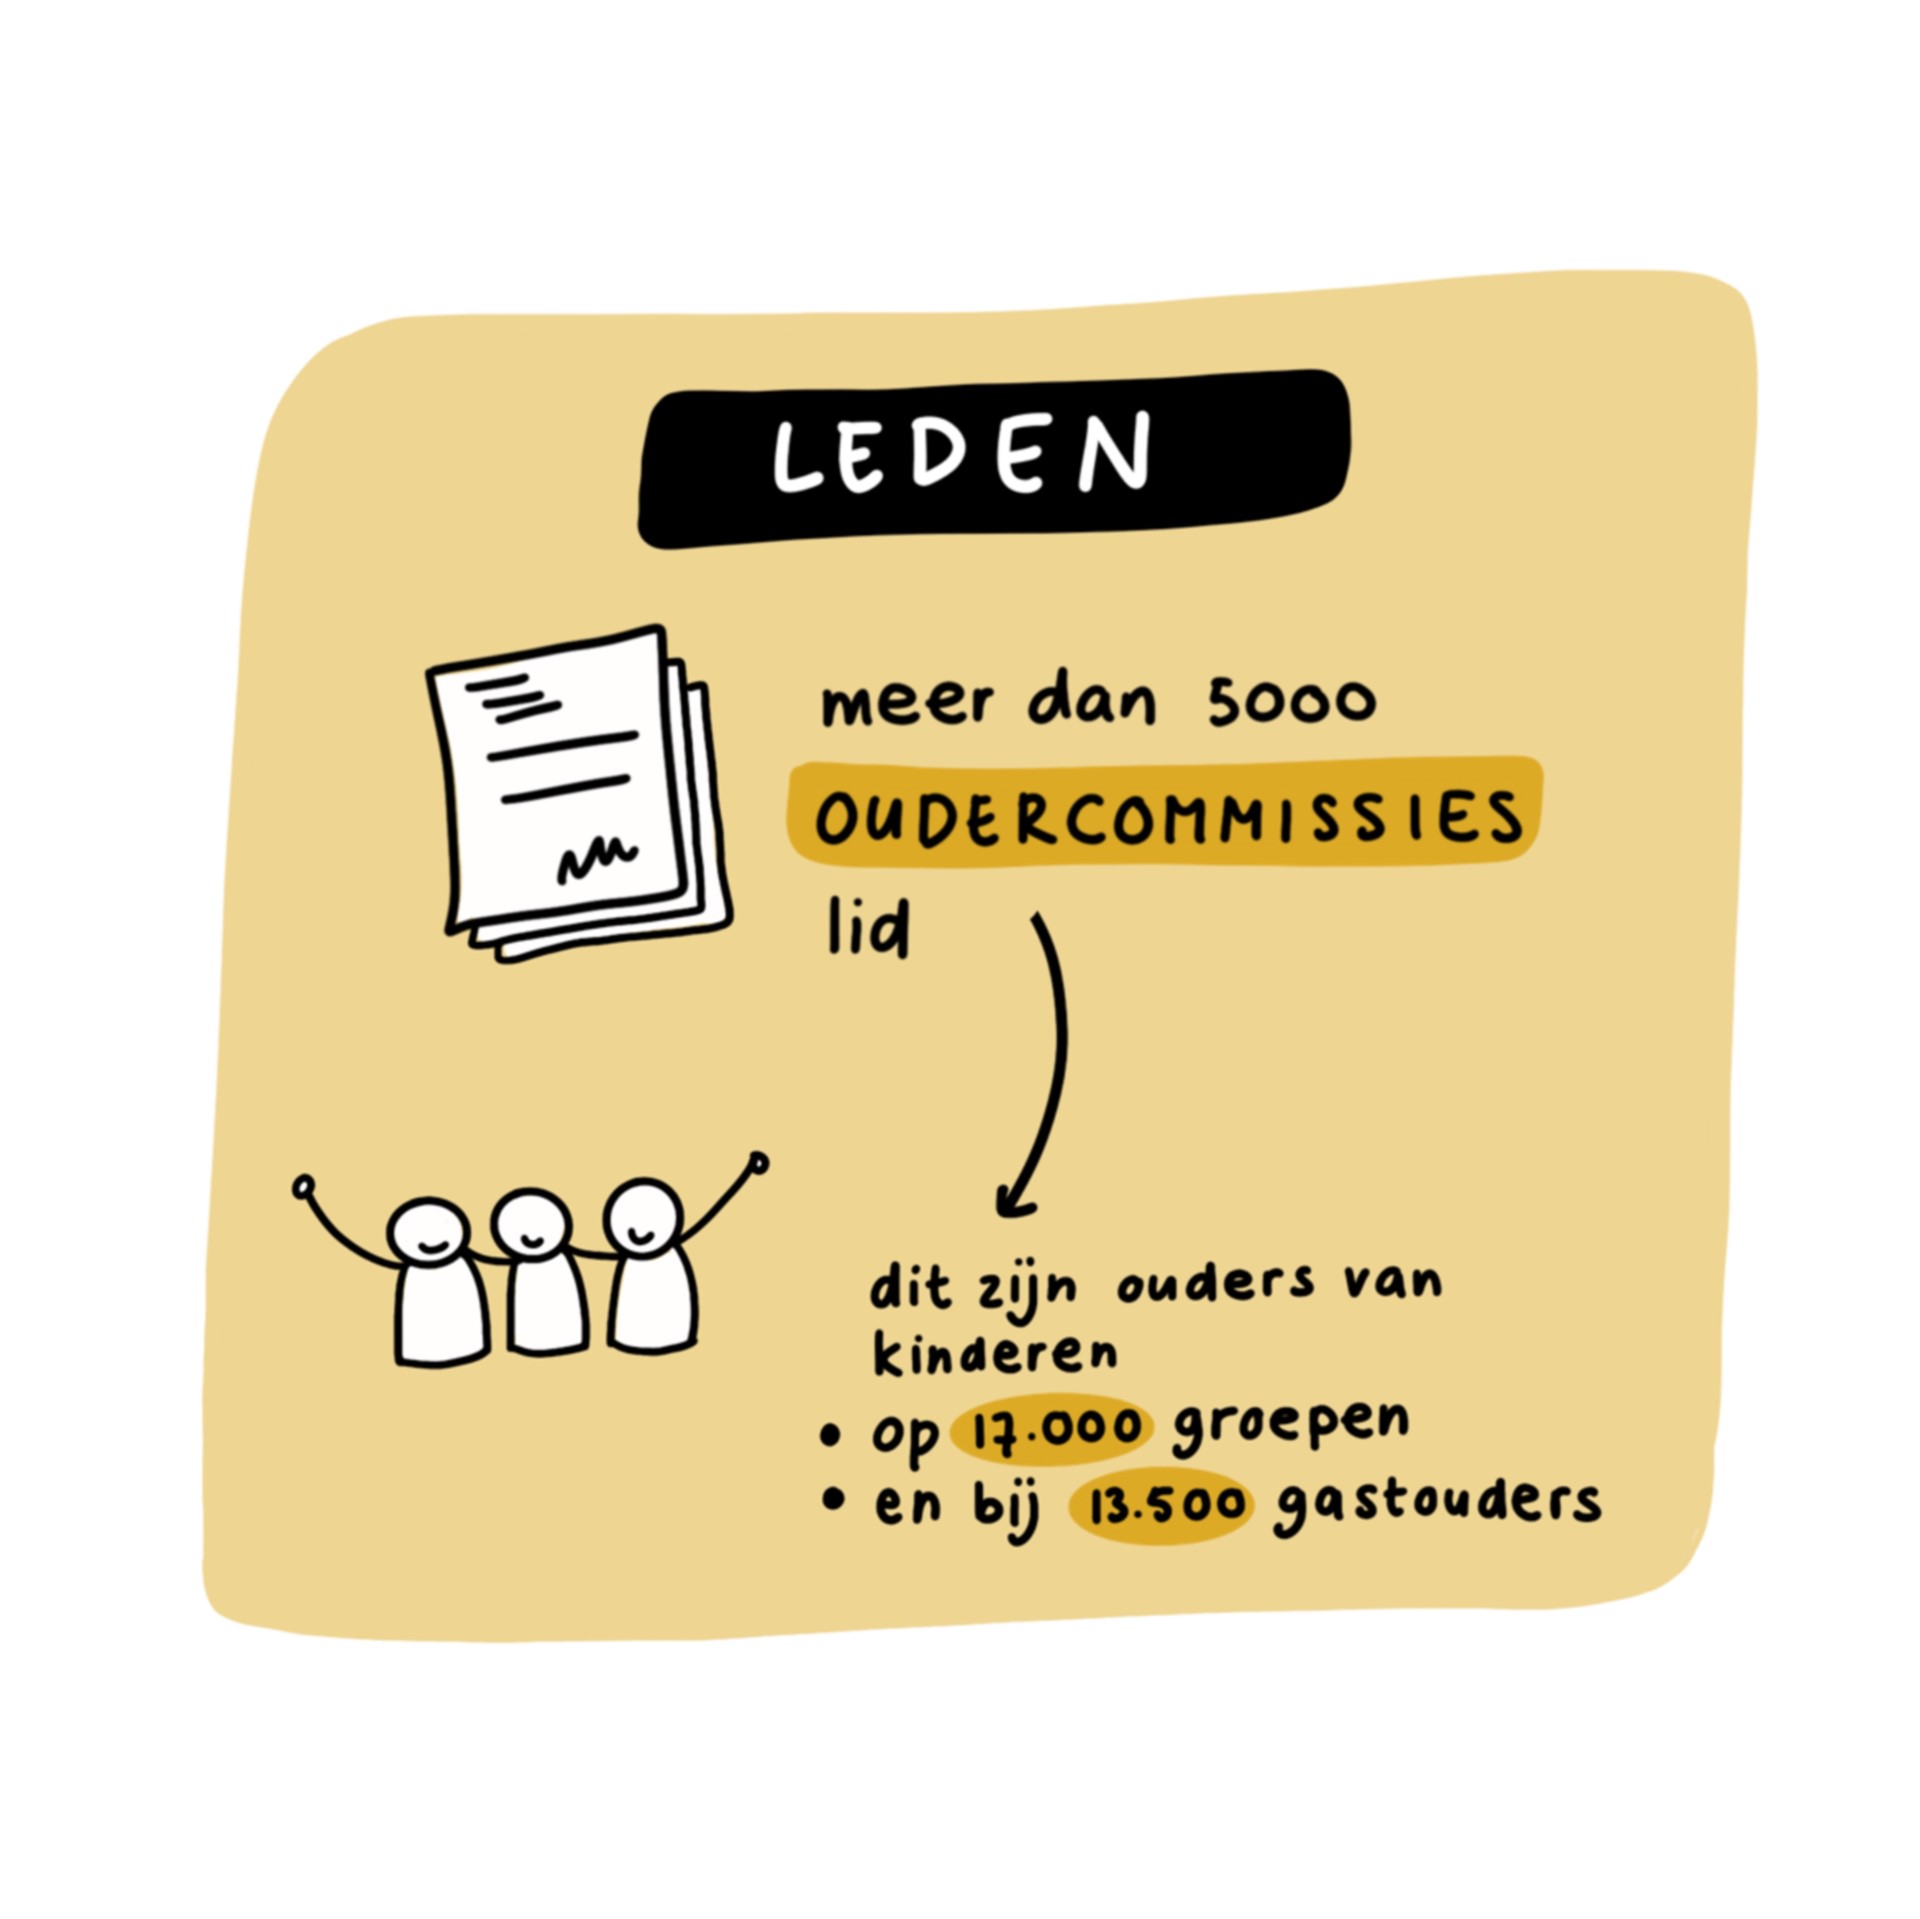 LEDEN
meer dan 5000
OUDERCOMMISSIES
lid
dit zijn ouders van
kinderen
• op 17.000 groepen
• en bij 13.500 gastouders